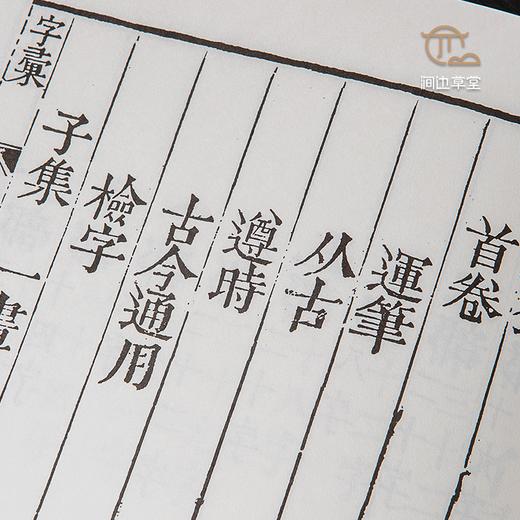 首卷
運筆
从古
遵時
古今通用
檢字
子集
字彙
一畫
涧边草堂